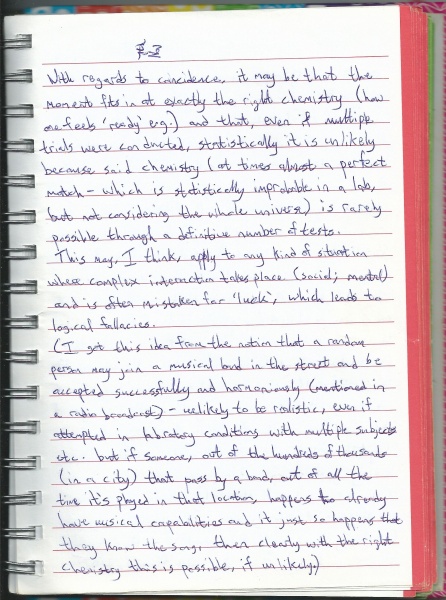 P. I
With regards to coincidence, it may be that the
moment fits in at exactly the right chemistry (how
one feels 'ready' e.g.) and that, even if multiple
trials were conducted, statistically it is unlikely
because said chemistry (at times almost a perfect
match - which is statistically improbable in a lab,
but not considering the whole universe) is rarely
possible through a definitive number of tests.
This may, I think, apply to any kind of situation
where complex interaction takes place (social; mental)
and is often mistaken for 'luck', which leads to
logical fallacies.
(I got this idea from the notion that a random
person may join a musical band in the street and be
accepted successfully and harmoniously (mentioned in
a radio broadcast) - unlikely to be realistic, even if
attempted in labratory conditions with multiple subjects
etc. but if someone, out of the hundreds of thousands
(in a city) that pass by a band, out of all the
time it's played in that location, happens to already
have musical capabilities and it just so happens that
they know the song, then clearly with the right
chemistry this is possible, if unlikely.)